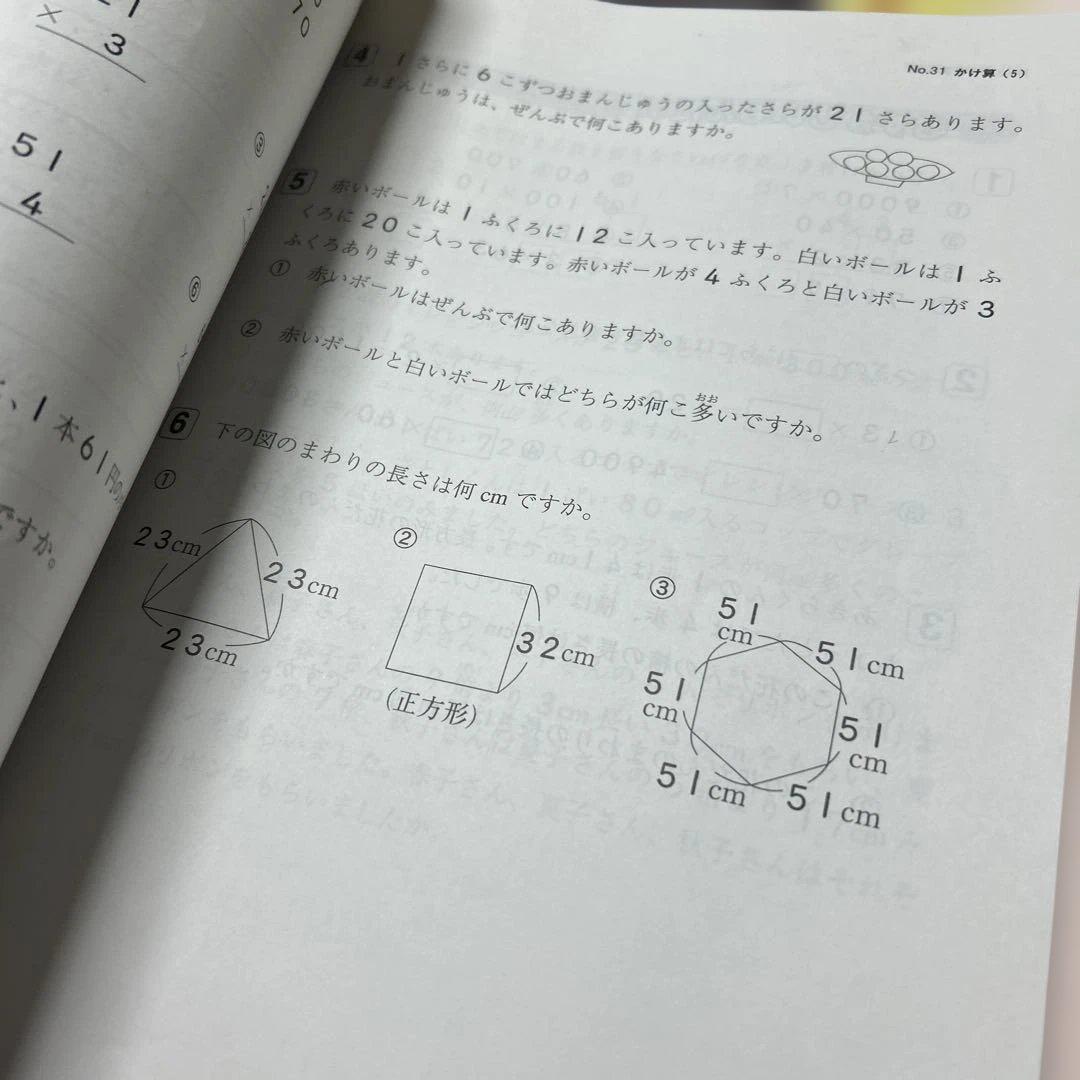 No.31 かけ算（5）
× 3
51
4
③
⑥
、1本61円の
ですか。
4 1さらに6こずつおまんじゅうの入ったさらが21さらあります。
おまんじゅうは、ぜんぶで何こありますか。
5 赤いボールは1ふくろに12こ入っています。白いボールは1ふ
くろに20こ入っています。赤いボールが4ふくろと白いボールが3
ふくろあります。
① 赤いボールはぜんぶで何こありますか。
② 赤いボールと白いボールではどちらが何こ多いですか。
おお
6 下の図のまわりの長さは何cmですか。
①
23cm
23cm
23cm
②
32cm
(正方形)
③
51
cm
51cm
51
cm
51
cm
51cm
51cm